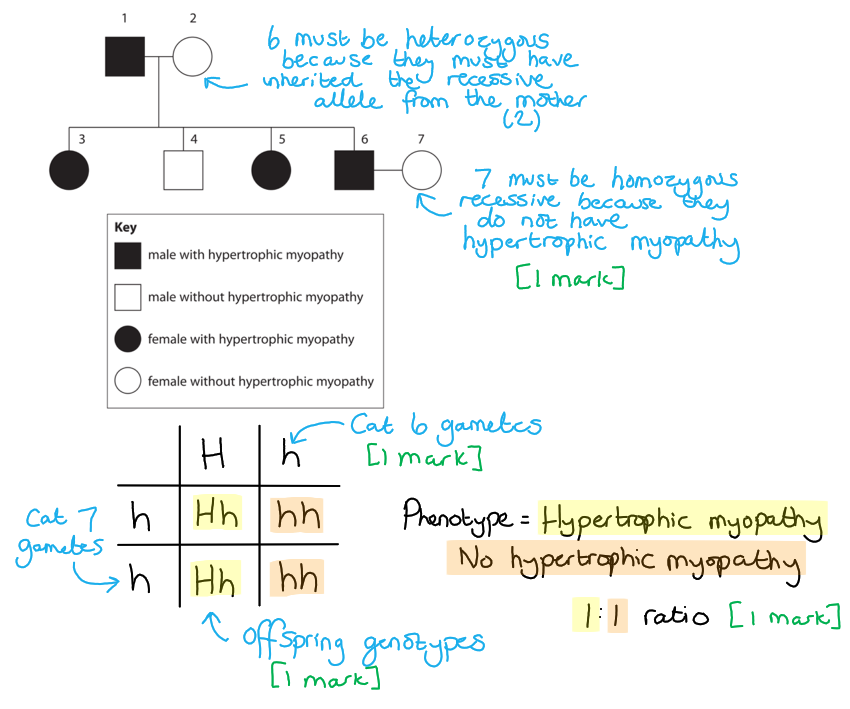 1
2
6 must be heterozygous
because they must have
inherited the recessive
allele from the mother
(2)
3
4
5
6
7
7 must be homozygous
recessive because they
do not have
hypertrophic myopathy
[1 mark]
Key
male with hypertrophic myopathy
male without hypertrophic myopathy
female with hypertrophic myopathy
female without hypertrophic myopathy
Cat 6 gametes
[1 mark]
H h
Cat 7
gametes
h Hh hh
h Hh hh
Phenotype = Hypertrophic myopathy
No hypertrophic myopathy
1:1 ratio [1 mark]
Offspring genotypes
[1 mark]